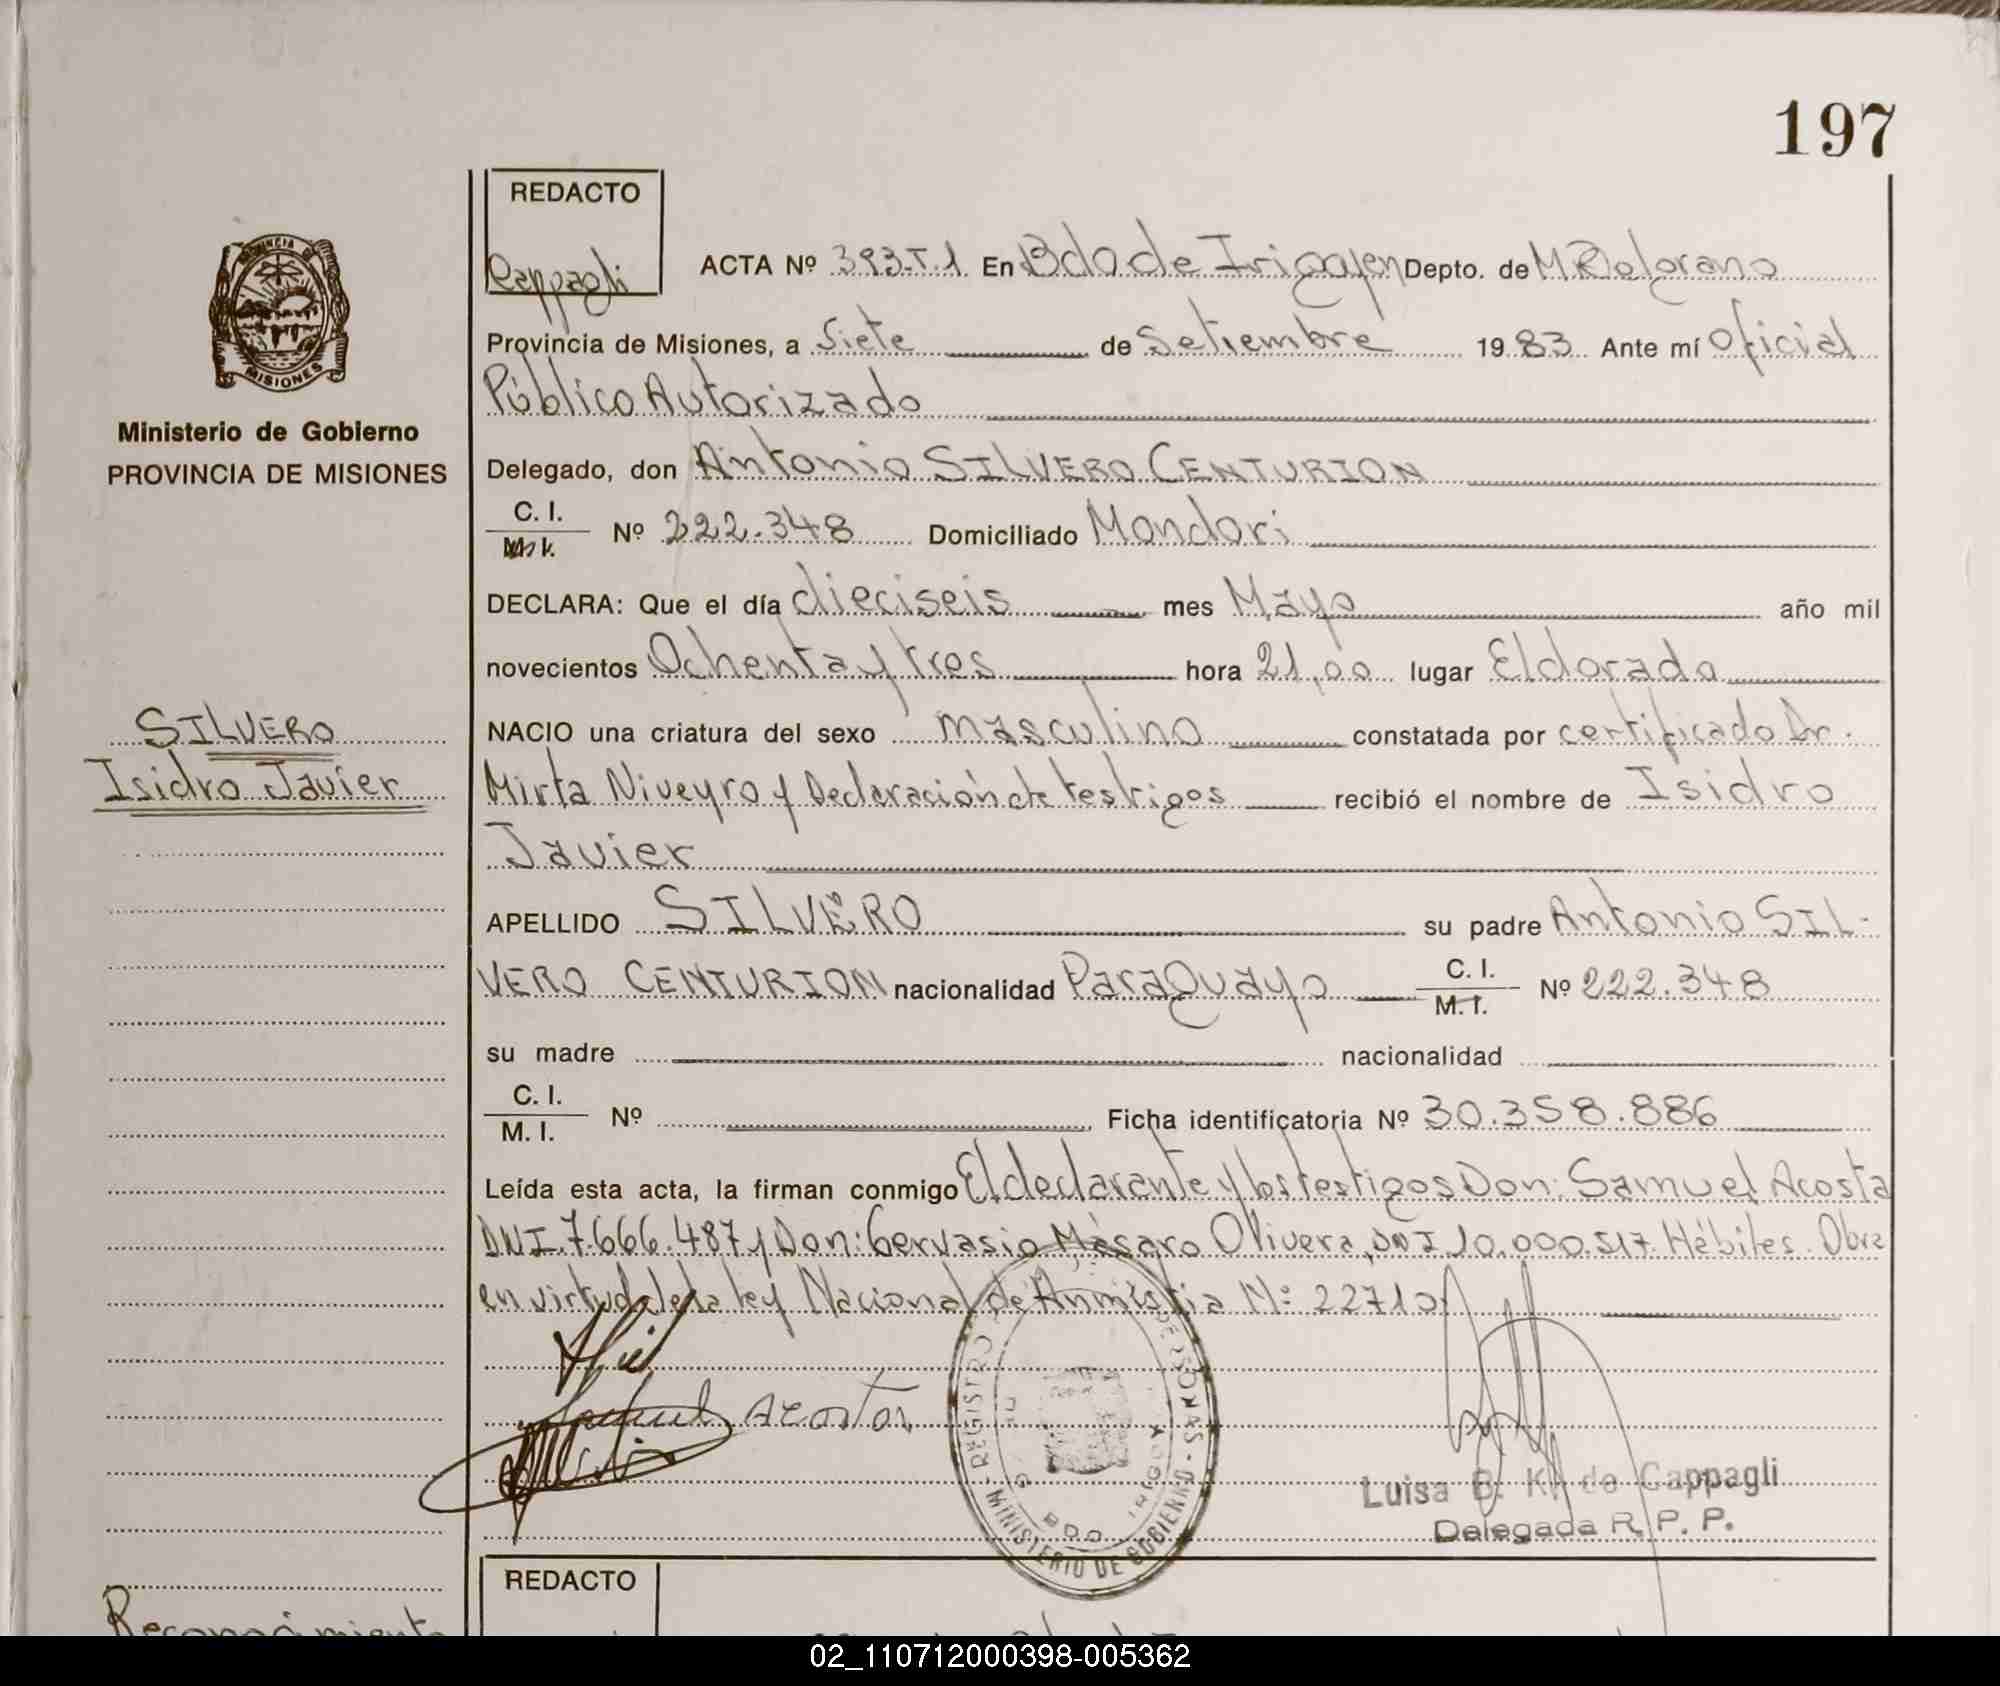 197
REDACTO
Cappagli
ACTA Nº 393.T.1 En Bdo de Irigoyen Depto. de M Belgrano
Provincia de Misiones, a Siete de Setiembre 1983 Ante mí Oficial
Público Autorizado
PROVINCIA DE
MISIONES
Ministerio de Gobierno
PROVINCIA DE MISIONES
Delegado, don Antonio SILVERO CENTURION
C. I.
M. I.
Nº 222.348 Domiciliado Mondori
DECLARA: Que el día dieciseis mes Mayo año mil
novecientos Ochenta y tres hora 21,00 lugar Eldorado
SILVERO
Isidro Javier
NACIO una criatura del sexo masculino constatada por certificado Dr.
Mirta Niveyro y Declaración de testigos recibió el nombre de Isidro
Javier
APELLIDO SILVERO su padre Antonio SIL-
VERO CENTURION nacionalidad Paraguayo C. I. M. I. Nº 222.348
su madre nacionalidad
C. I.
M. I.
Nº Ficha identificatoria Nº 30.358.886
Leída esta acta, la firman conmigo El declarante y los testigos Don: Samuel Acosta
DNI.7.666.487 y Don: Gervasio Másaro Olivera, DNI 10.000.517. Hábiles. Obra
en virtud de la ley Nacional de Amnistia Nº 22710
Samuel Acosta
REGISTRO PERSONAS - MINISTERIO DE GOBIERNO
BDO. IRIGOY
Luisa B. K. de Cappagli
Delegada R. P. P.
REDACTO
Reconocimiento
02_110712000398-005362